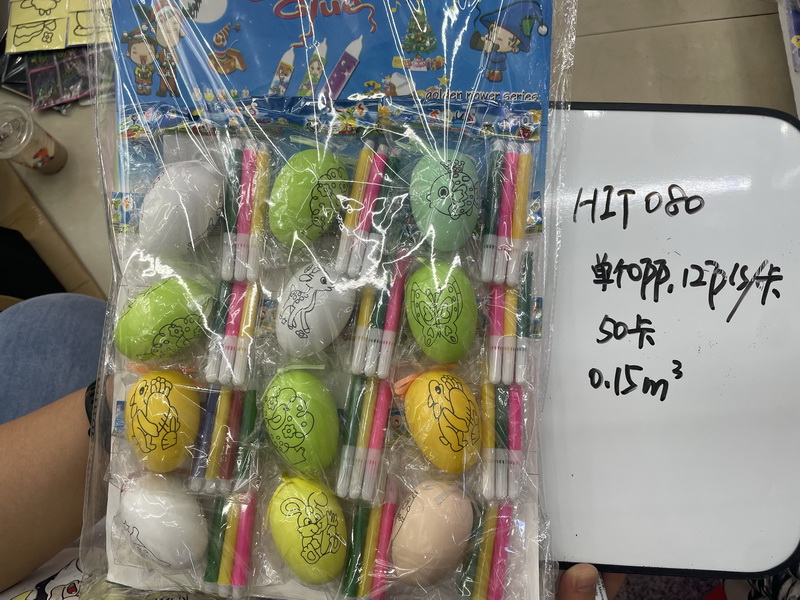 Glue
golden power series
HIT080
单个pp, 12pis/卡
50卡
0.15m³